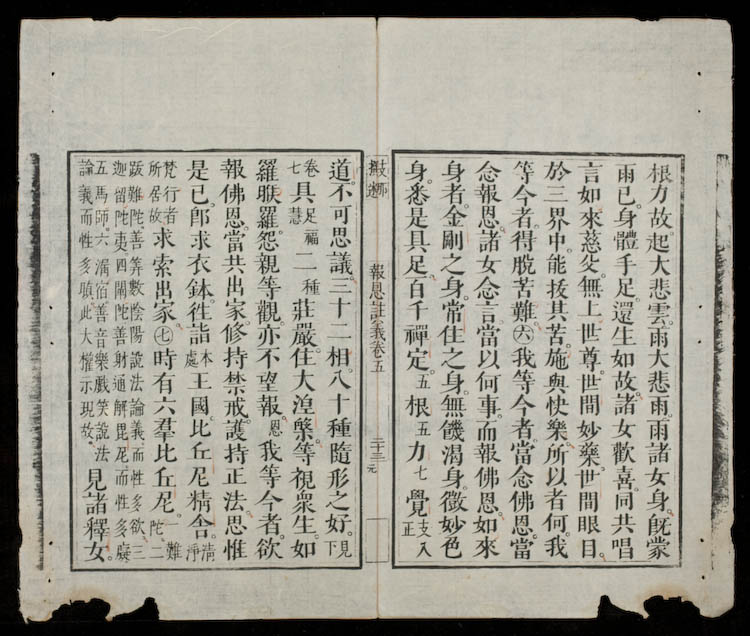 根力故。起大悲雲。雨大悲雨。雨諸女身。旣蒙
雨已。身體手足。還生如故。諸女歡喜。同共唱
言。如來慈父。無上世尊。世間妙藥。世間眼目。
於三界中。能拔其苦。施與快樂。所以者何。我
等今者。得脫苦難。㊅我等今者。當念佛恩。當
念報恩。諸女念言。當以何事。而報佛恩。如來
身者。金剛之身。常住之身。無饑渴身。微妙色
身。悉是具足。百千禪定。五根五力七覺支入正
報恩註義卷五
二十三
元
道。不可思議。三十二相。八十種隨形之好。見下
卷七具足福慧二種莊嚴。住大涅槃。等視衆生。如
羅睺羅。怨親等觀。亦不望報恩。我等今者。欲
報佛恩。當共出家。修持禁戒。護持正法。思惟
是已。卽求衣鉢。徃詣本處王國比丘尼精舍。淸淨
梵行者所居故求索出家。㊆時有六羣比丘尼。難陀。二
跋難陀。善筭數陰陽說法論義。而性多欲。三
迦留陀夷。四闡陀。善射通解毘尼。而性多癡
五馬師。六滿宿。善音樂戲笑說法
論義。而性多嗔。此大權示現故。見諸釋女。